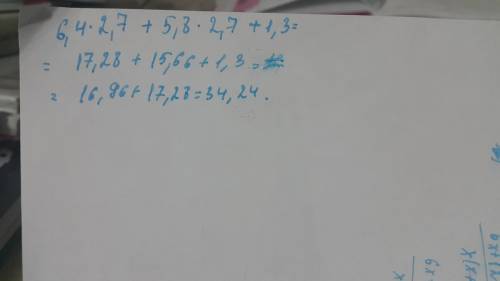 6,4 · 2,7 + 5,8 · 2,7 + 1,3 =
= 17,28 + 15,66 + 1,3 =
= 16,96 + 17,28 = 34,24.